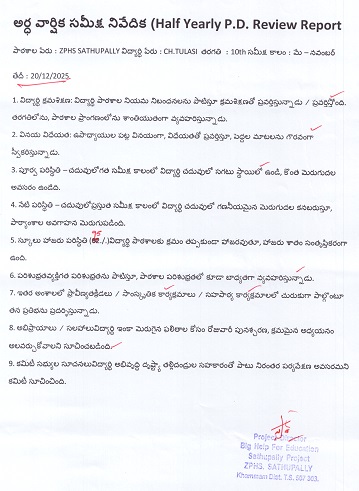 అర్ధ వార్షిక సమీక్ష నివేదిక (Half Yearly P.D. Review Report
పాఠశాల పేరు : ZPHS SATHUPALLY విద్యార్థి పేరు : CH.TULASI తరగతి : 10th సమీక్ష కాలం : మే – నవంబర్
తేదీ : 20/12/2025.
1. విద్యార్థి క్రమశిక్షణ: విద్యార్థి పాఠశాల నియమ నిబంధనలను పాటిస్తూ క్రమశిక్షణతో ప్రవర్తిస్తున్నాడు / ప్రవర్తిస్తోంది.
తరగతిలోను, పాఠశాల ప్రాంగణంలోను శాంతియుతంగా వ్యవహరిస్తున్నాడు.
2. వినయ విధేయత: ఉపాధ్యాయుల పట్ల వినయంగా, విధేయతతో ప్రవర్తిస్తూ, పెద్దల మాటలను గౌరవంగా
స్వీకరిస్తున్నాడు.
3. పూర్వ పరిస్థితి – చదువులోగత సమీక్ష కాలంలో విద్యార్థి చదువులో సగటు స్థాయిలో ఉండి, కొంత మెరుగుదల
అవసరం ఉండేది.
4. నేటి పరిస్థితి – చదువులోప్రస్తుత సమీక్ష కాలంలో విద్యార్థి చదువులో గణనీయమైన మెరుగుదల కనబరుస్తూ,
పాఠ్యాంశాల అవగాహన మెరుగుపడింది.
5. స్కూలు హాజరు పరిస్థితి ( /.)విద్యార్థి పాఠశాలకు క్రమం తప్పకుండా హాజరవుతూ, హాజరు శాతం సంతృప్తికరంగా
ఉంది.
6. పరిశుభ్రతవ్యక్తిగత పరిశుభ్రతను పాటిస్తూ, పాఠశాల పరిశుభ్రతలో కూడా బాధ్యతగా వ్యవహరిస్తున్నాడు.
7. ఇతర అంశాలలో ప్రావీణ్యతక్రీడలు / సాంస్కృతిక కార్యక్రమాలు / సహపాఠ్య కార్యక్రమాలలో చురుకుగా పాల్గొంటూ
తన ప్రతిభను ప్రదర్శిస్తున్నాడు.
8. అభిప్రాయాలు / సలహాలువిద్యార్థి ఇంకా మెరుగైన ఫలితాల కోసం రోజువారీ పునశ్చరణ, క్రమమైన అధ్యయనం
అలవర్చుకోవాలని సూచించబడింది.
9. కమిటీ సభ్యుల సూచనలువిద్యార్థి అభివృద్ధి దృష్ట్యా తల్లిదండ్రుల సహకారంతో పాటు నిరంతర పర్యవేక్షణ అవసరమని
కమిటీ సూచించింది.
Project Director
Big Help For Education
Sathupally Project
ZPHS, SATHUPALLY
Khammam Dist. T.S. 507 303.